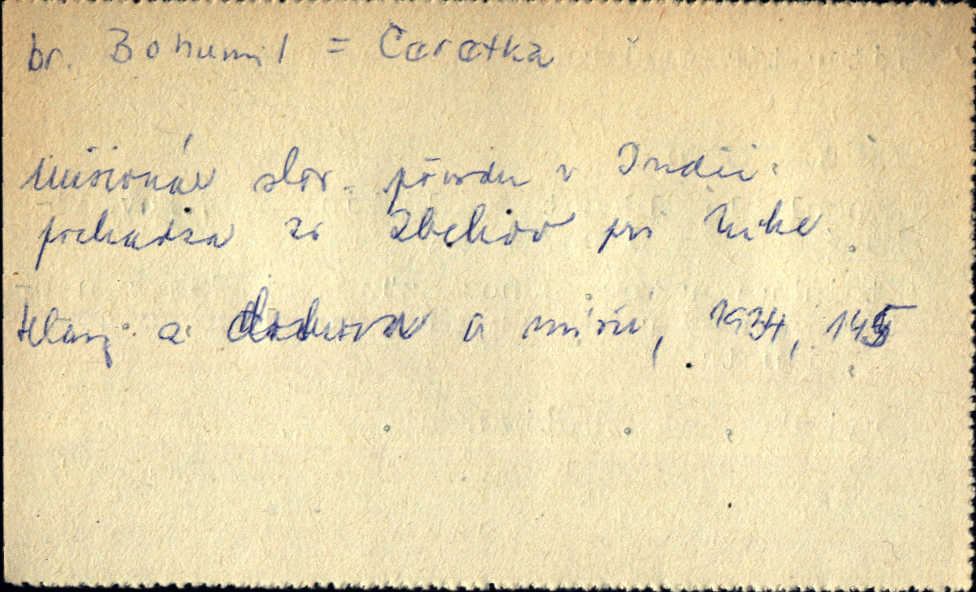 br. Bohumil = Čaratka
misionár slov. pôvodu v Indii.
pochádza zo Zbehov pri Nitre
a misií, 1934, 145